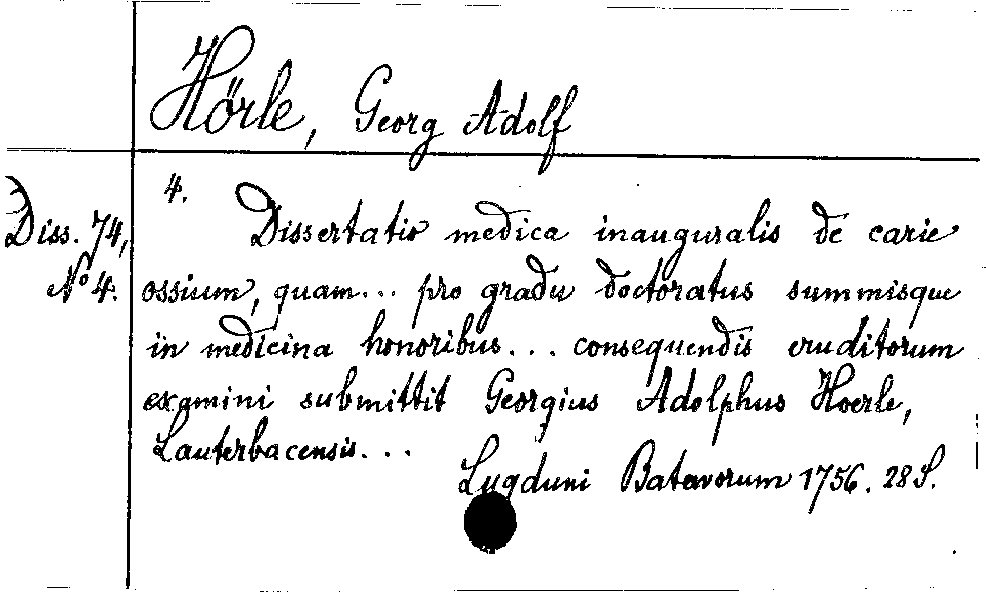 Hörle, Georg Adolf
4.
Diss. 74,
No 4.
Dissertatio medica inauguralis de carie
ossium, quam... pro gradu doctoratus summisque
in medicina honoribus... consequendis eruditorum
examini submittit Georgius Adolphus Hoerle,
Lauterbacensis...
Lugduni Batavorum 1756. 28 S.